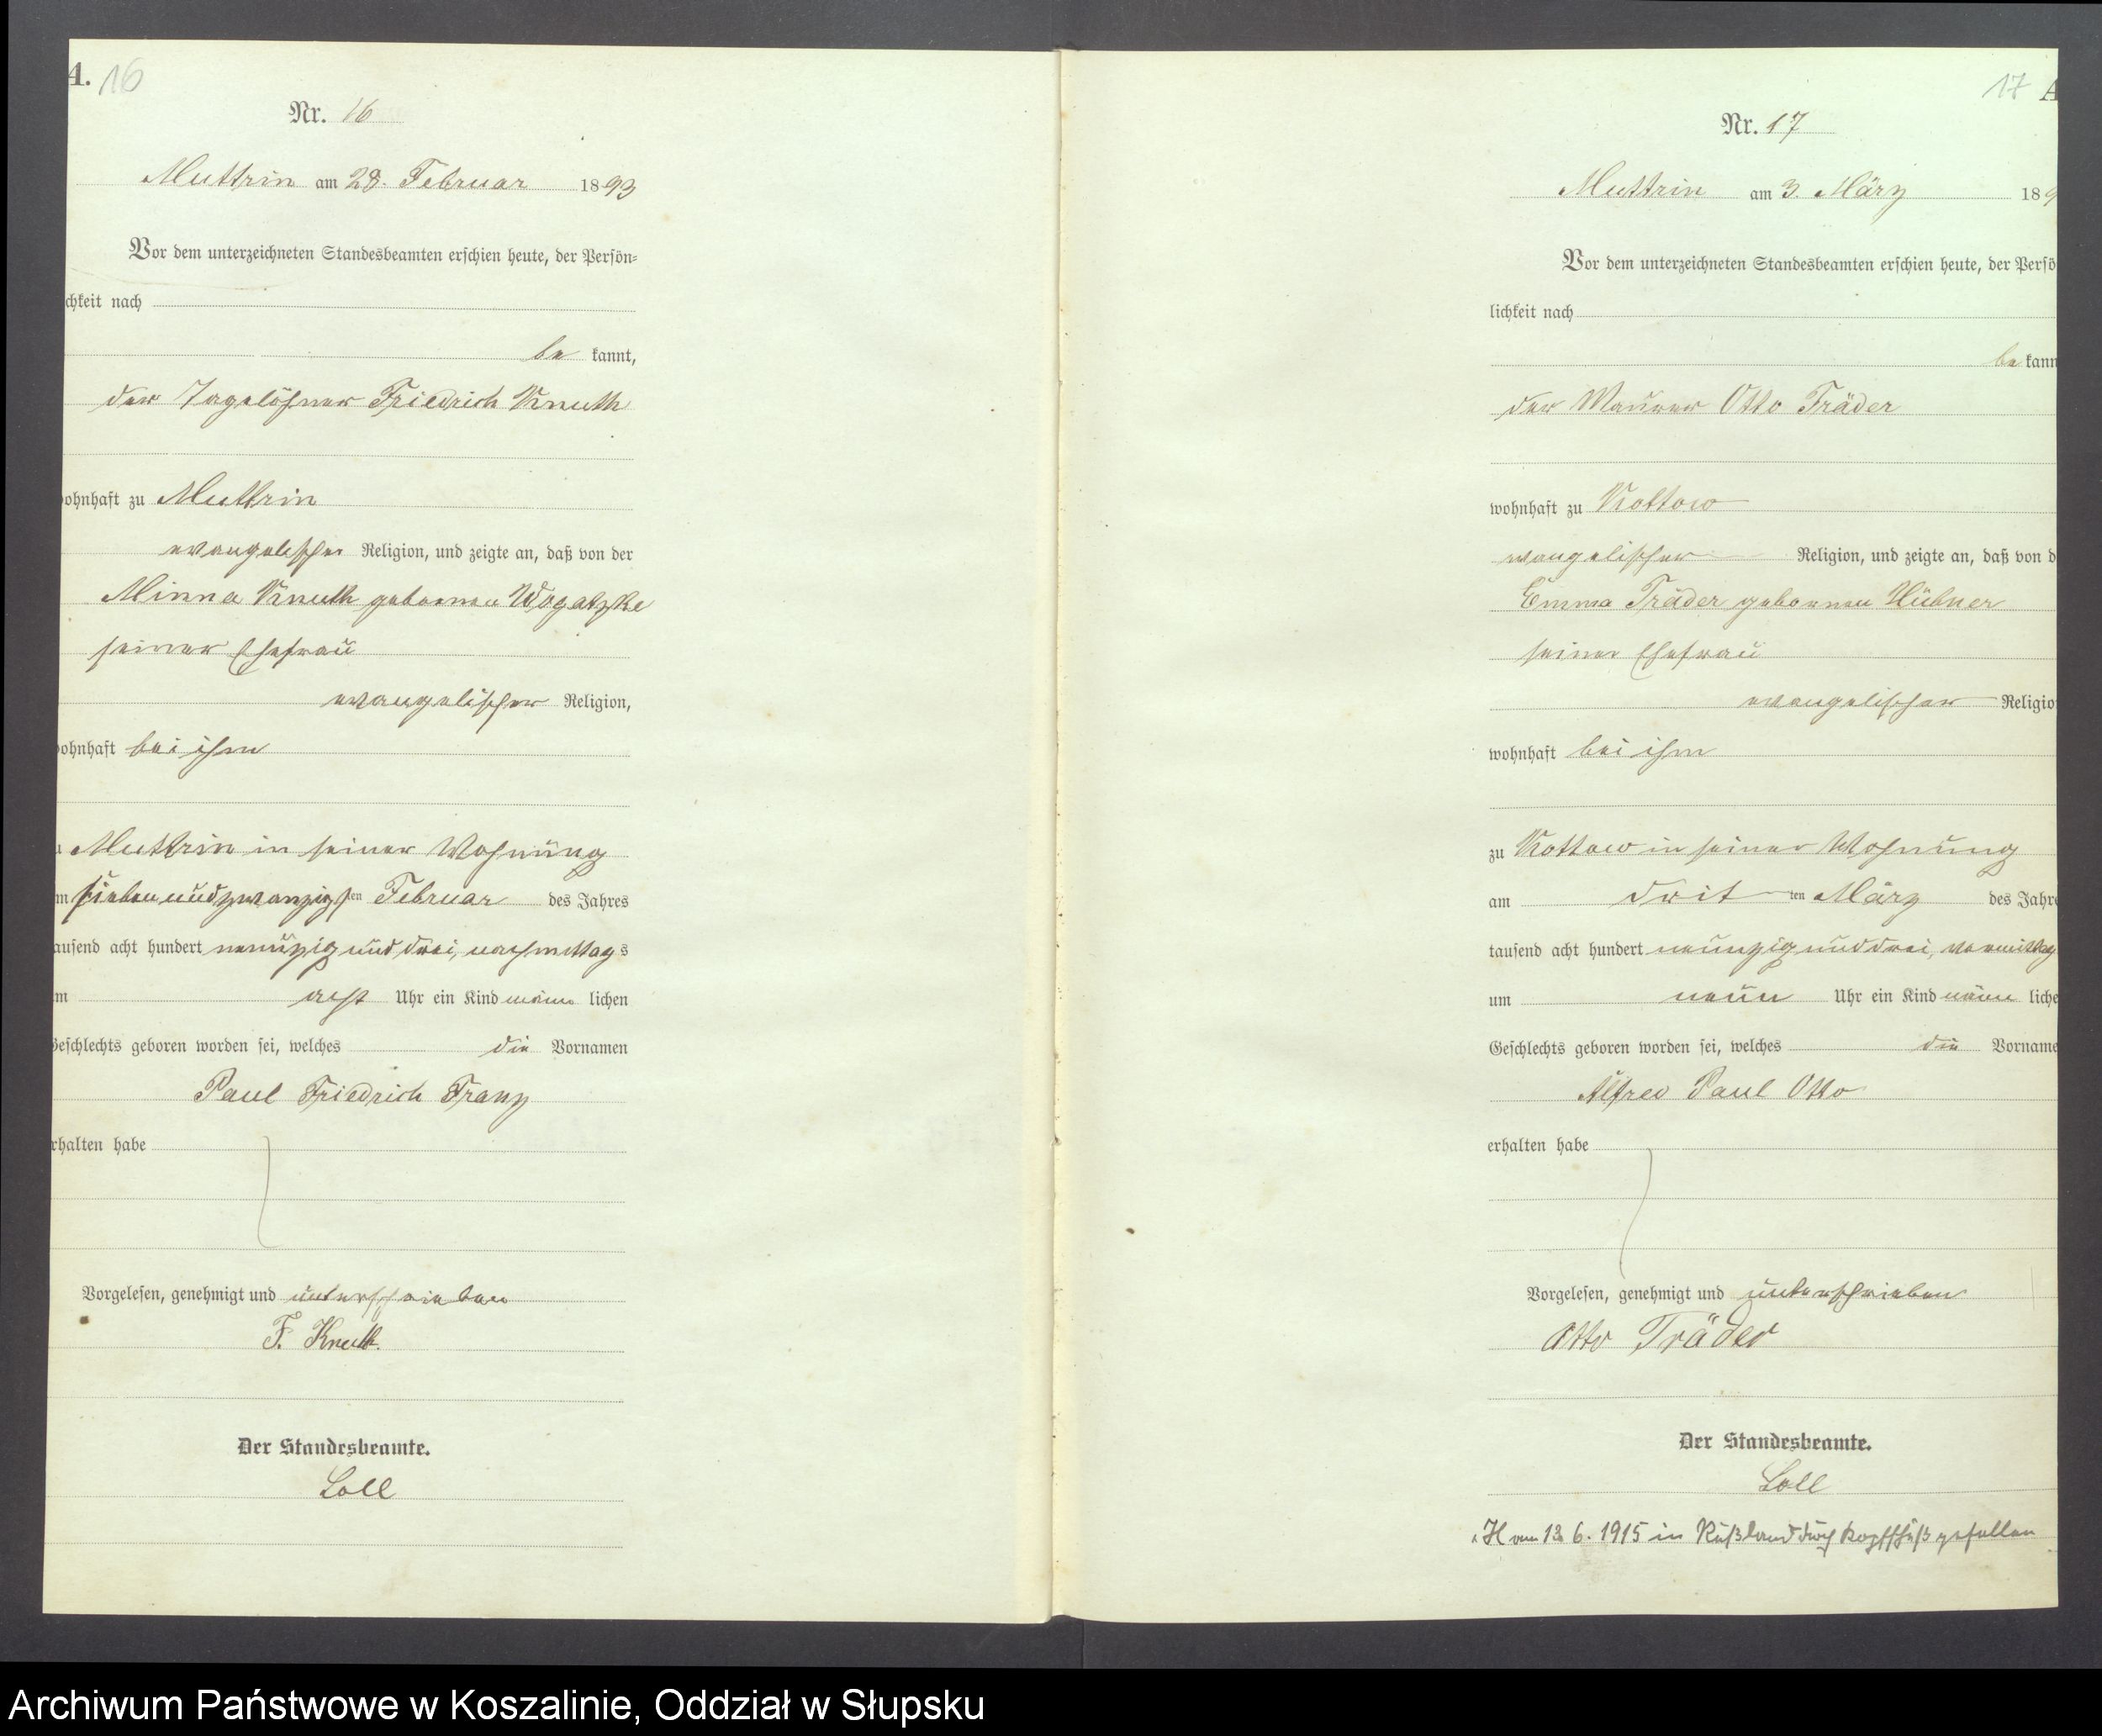 A. 16
Nr. 16
Muttrin am 28. Februar 1893
Vor dem unterzeichneten Standesbeamten erschien heute, der Persön-
chkeit nach
be kannt,
der Tagelöhner Friedrich Knuth
ohnhaft zu Muttrin
evangelischer Religion, und zeigte an, daß von der
Minna Knuth geborenen Wogatzke
seiner Ehefrau
evangelischer Religion,
ohnhaft bei ihm
Muttrin in seiner Wohnung
m siebenundzwanzigsten Februar des Jahres
ausend acht hundert neunzig und drei, nachmittags
m acht Uhr ein Kind männlichen
Geschlechts geboren worden sei, welches die Vornamen
Paul Friedrich Franz
rhalten habe
Vorgelesen, genehmigt und unterschrieben
F. Knuth.
Der Standesbeamte.
Loll
17 A
Nr. 17
Muttrin am 3. März 189
Vor dem unterzeichneten Standesbeamten erschien heute, der Persö
lichkeit nach
be kann
der Maurer Otto Träder
wohnhaft zu Kottow
evangelischer Religion, und zeigte an, daß von d
Emma Träder geborenen Hübner
seiner Ehefrau
evangelischer Religio
wohnhaft bei ihm
zu Kottow in seiner Wohnung
am dritten März des Jahre
tausend acht hundert neunzig und drei, vormittag
um neun Uhr ein Kind männliche
Geschlechts geboren worden sei, welches die Vorname
Alfred Paul Otto
erhalten habe
Vorgelesen, genehmigt und unterschrieben
Otto Träder
Der Standesbeamte.
Loll
am 12 6. 1915 in Rußland durch Kopfschuß gefallen
Archiwum Państwowe w Koszalinie, Oddział w Słupsku